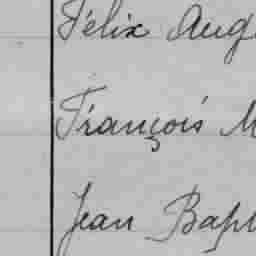 Félix Aug
François M
Jean Bap